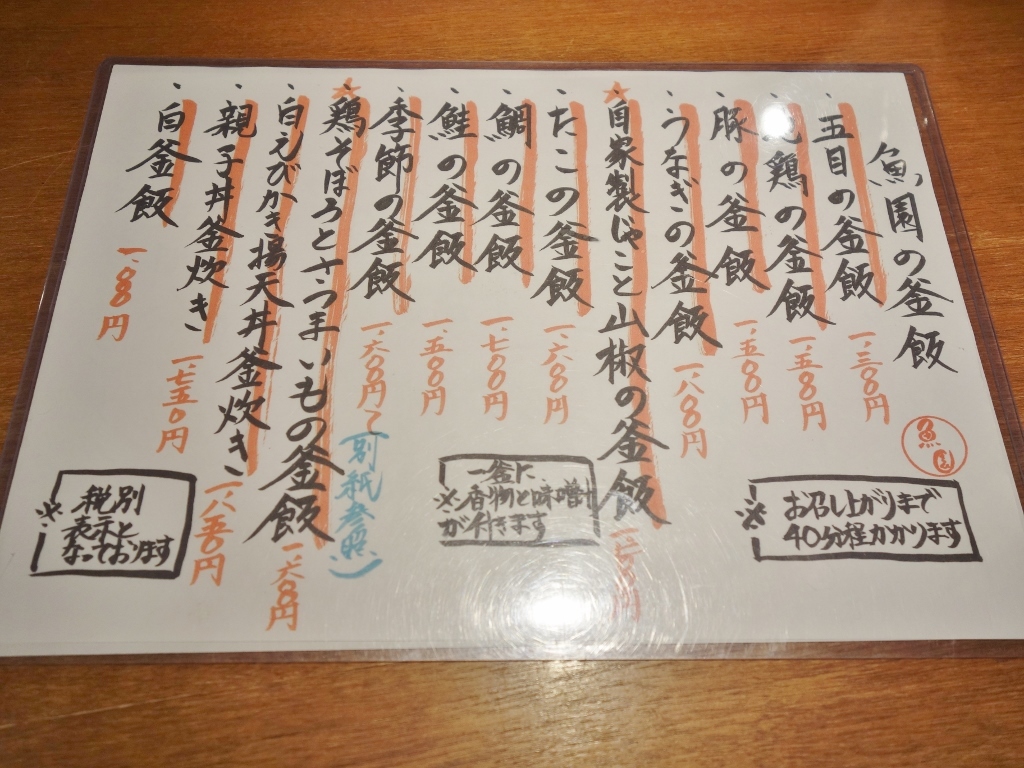 魚園の釜飯
魚園
・五目の釜飯 一、三〇〇円
鶏の釜飯 一、五〇〇円
・豚の釜飯 一、五〇〇円
・うなぎの釜飯 一、八〇〇円
★自家製じゃこと山椒の釜飯 円
・たこの釜飯 一、六〇〇円
・鯛の釜飯 一、七〇〇円
・鮭の釜飯 一、五〇〇円
・季節の釜飯 一、六〇〇円〜(別紙参照)
★鶏そぼろとさつま いもの釜飯 一、六〇〇円
・白えびかき揚天丼釜炊き 一、八五〇円
・親子丼釜炊き 一、七五〇円
・白釜飯 一、〇〇〇円
※お召し上がりまで
40分程かかります
一釜に、
※香物と味噌汁
が付きます
※税別
表示と
なっております